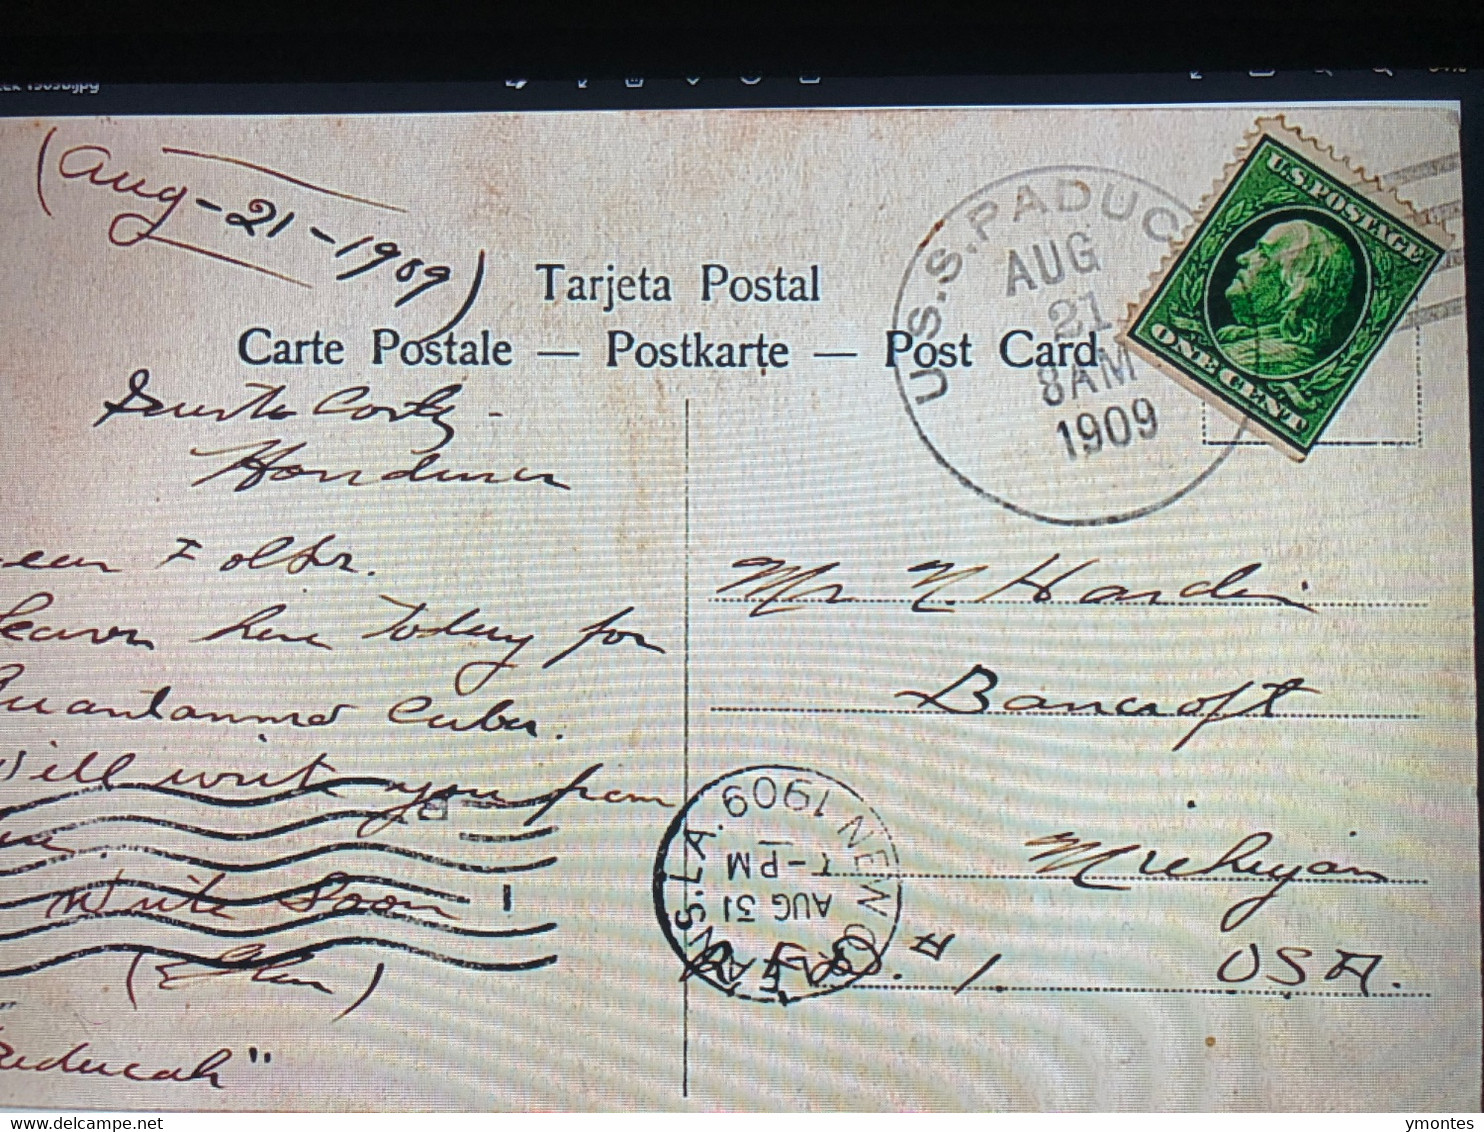 (Aug-21-1909)
Tarjeta Postal
Carte Postale — Postkarte — Post Card
U.S.S. PADUC
AUG
21
8AM
1909
U.S. POSTAGE
ONE CENT
Honduras
ear Folks.
Leaves here today for
Guantanmo Cuba.
Will write you from
Write Soon!
(Glen)
aducah"
Mr N. Hardin
Bancroft
Michigan
R.F.D. #1, USA.
NEW ORLEANS. LA. 1909
AUG 31
-PM
ymontes